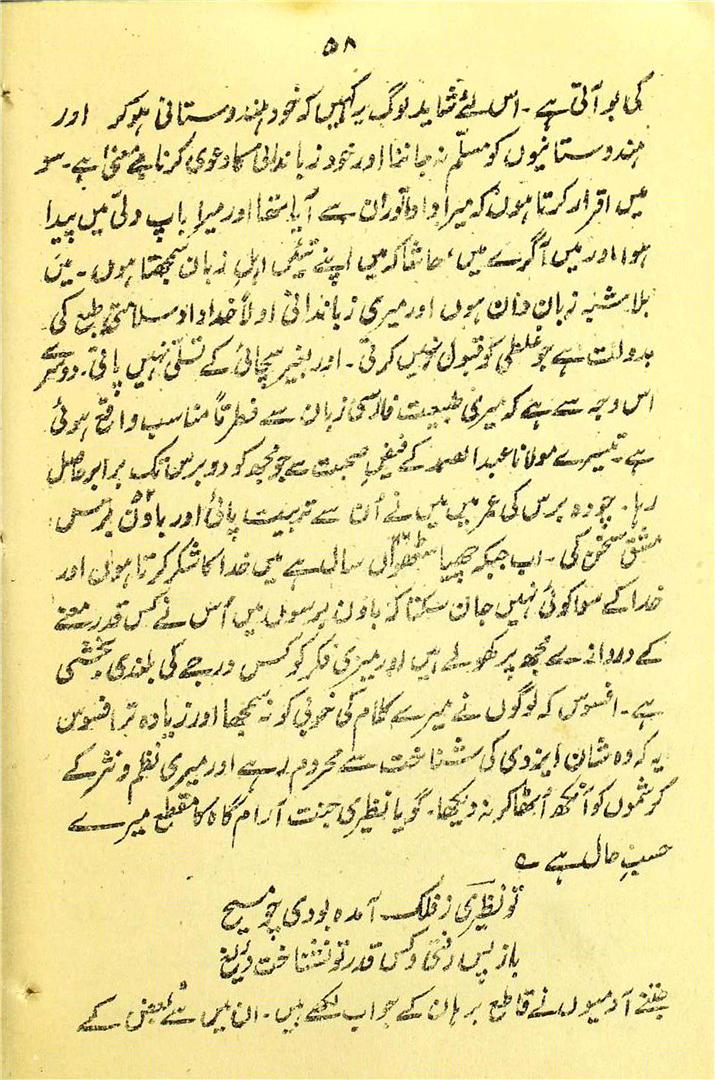 ۵۸
کی بو آتی ہے۔ اس لئے شاید لوگ یہ کہیں کہ خود ہندوستانی ہو کر اور
ہندوستانیوں کو مسلّم نہ جاننا اور خود زباندانی کا دعویٰ کرنا بے معنیٰ ہے۔ سو
میں اقرار کرتا ہوں کہ میرا دادا توران سے آیا تھا اور میرا باپ دلّی میں پیدا
ہوا اور میں آگرے میں، حاشا کہ میں اپنے تیٔں اہلِ زبان سمجھتا ہوں۔ میں
بلا شبہ زبان دان ہوں اور میری زباندانی اولاً خداداد سلامتیِ طبع کی
بدولت ہے جو غلطی کو قبول نہیں کرتی۔ اور بغیر سچائی کے تسلّی نہیں پاتی۔ دوسرے
اس وجہ سے ہے کہ میری طبیعت فارسی زبان سے فطرتاً مناسب واقع ہوئی
ہے۔ تیسرے مولانا عبدالصمد کے فیضِ صحبت سے جو مجھ کو دو برس تک برابر حاصل
رہا۔ چودہ برس کی عمر میں میں نے اُن سے تربیت پائی اور باون برس
مشق سخن کی۔ اب جبکہ چھیاسٹھواں سال ہے میں خدا کا شکر کرتا ہوں اور
خدا کے سوا کوئی نہیں جان سکتا کہ باون برسوں میں اُس نے کس قدر معنے
کے دروازے مجھ پر کھولے ہیں اور میری فکر کو کس درجے کی بلندی بخشی
ہے۔ افسوس کہ لوگوں نے میرے کلام کی خوبی کو نہ سمجھا اور زیادہ تر افسوس
یہ کہ وہ شان ایزدی کی شناخت سے محروم رہے اور میری نظم و نثر کے
کرشموں کو آنکھ اُٹھا کر نہ دیکھا۔ گویا نظیری جنت آرام گاہ کا مقطع میرے
حسبِ حال ہے ؎
تو نظیری ز فلک آمدہ بودی چو مسیح
باز پس رفتی و کس قدر تو نشناخت دریغ
جتنے آدمیوں نے قاطع برہان کے جواب لکھے ہیں۔ ان میں سے بعض کے